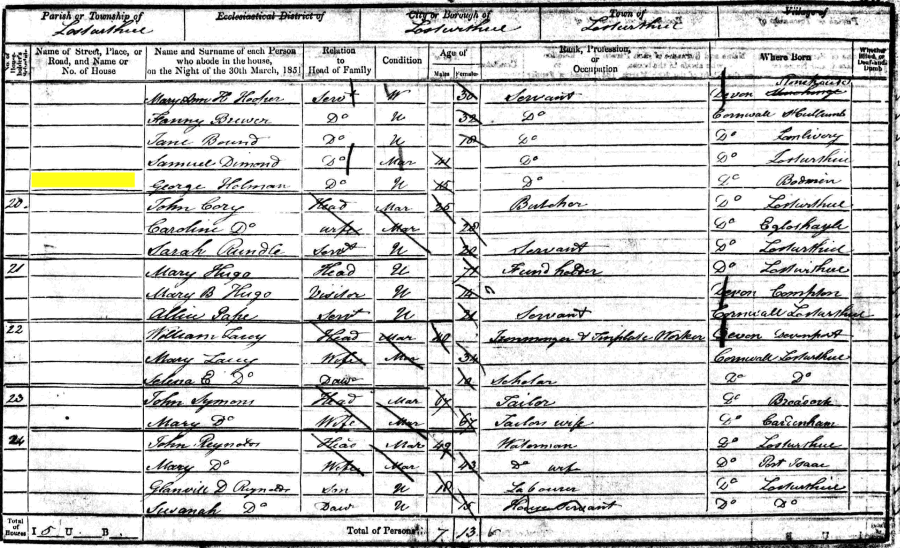 Parish or Township of Ecclesiastical District of City or Borough of Town of Village of
Lostwithiel Lostwithiel Lostwithiel
Name of Street, Place, or Road, and Name or No. of House
Name and Surname of each Person who abode in the house, on the Night of the 30th March, 1851
Relation to Head of Family
Condition
Age of
Males Females
Rank, Profession, or Occupation
Where Born
Whether Blind, or Deaf-and-Dumb
Mary Ann H Hooker Servt W 30 Servant Devon Stonehouse
Fanny Brewer Do U 32 Do Cornwall
Jane Bound Do U 18 Do Do Lanlivery
Samuel Dimond Do Mar 41 Do Do Lostwithiel
George Holman Do U 15 Do Do Bodmin
20 John Cory Head Mar 25 Butcher Do Lostwithiel
Caroline Do Wife Mar 28 Do Egloshayle
Sarah Rundle Servt U 20 Servant Do Lostwithiel
21 Mary Hugo Head U 71 Fund holder Do Lostwithiel
Mary B Hugo Visitor U Devon Compton
Allice Pape Servt U 21 Servant Cornwall Lostwithiel
22 William Lacey Head Mar 40 Ironmonger & Tinplate Worker Devon Devonport
Mary Lacey Wife Mar 34 Cornwall Lostwithiel
Selena E Do Daur Scholar Do Do
23 John Symons Head Mar 67 Tailor Do Broadoak
Mary Do Wife Mar 67 Tailors wife Do Cardenham
24 John Reynolds Head Mar 49 Waterman Do Lostwithiel
Mary Do Wife Mar 43 Do wife Do Port Isaac
Glanvill D Reynolds Son U 18 Labourer Do Lostwithiel
Susanah Do Daur U 15 House Servant Do Do
Total of Houses I 5 U B Total of Persons 7 13